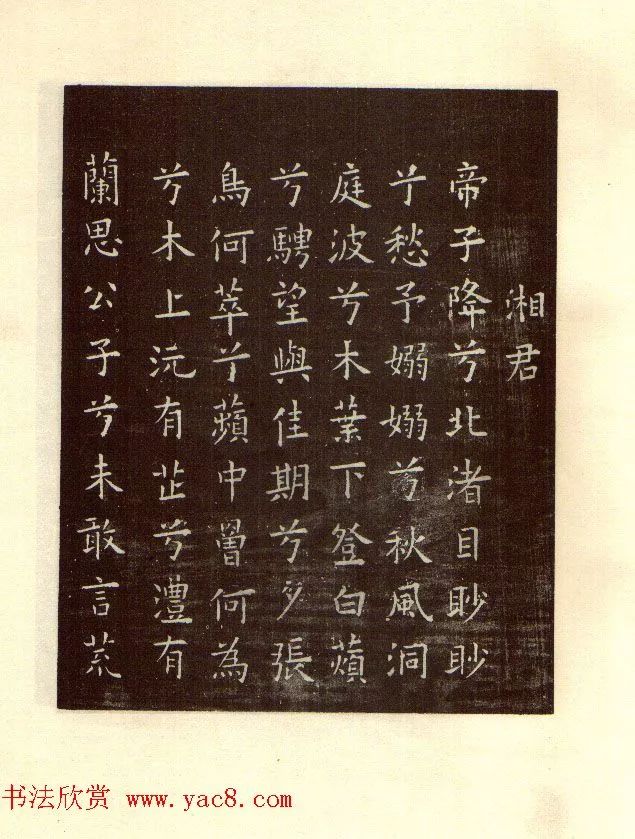 湘君
帝子降兮北渚目眇眇
兮愁予嫋嫋兮秋風洞
庭波兮木葉下登白薠
兮騁望與佳期兮夕張
鳥何萃兮蘋中罾何為
兮木上沅有芷兮澧有
蘭思公子兮未敢言荒
书法欣赏 www.yac8.com